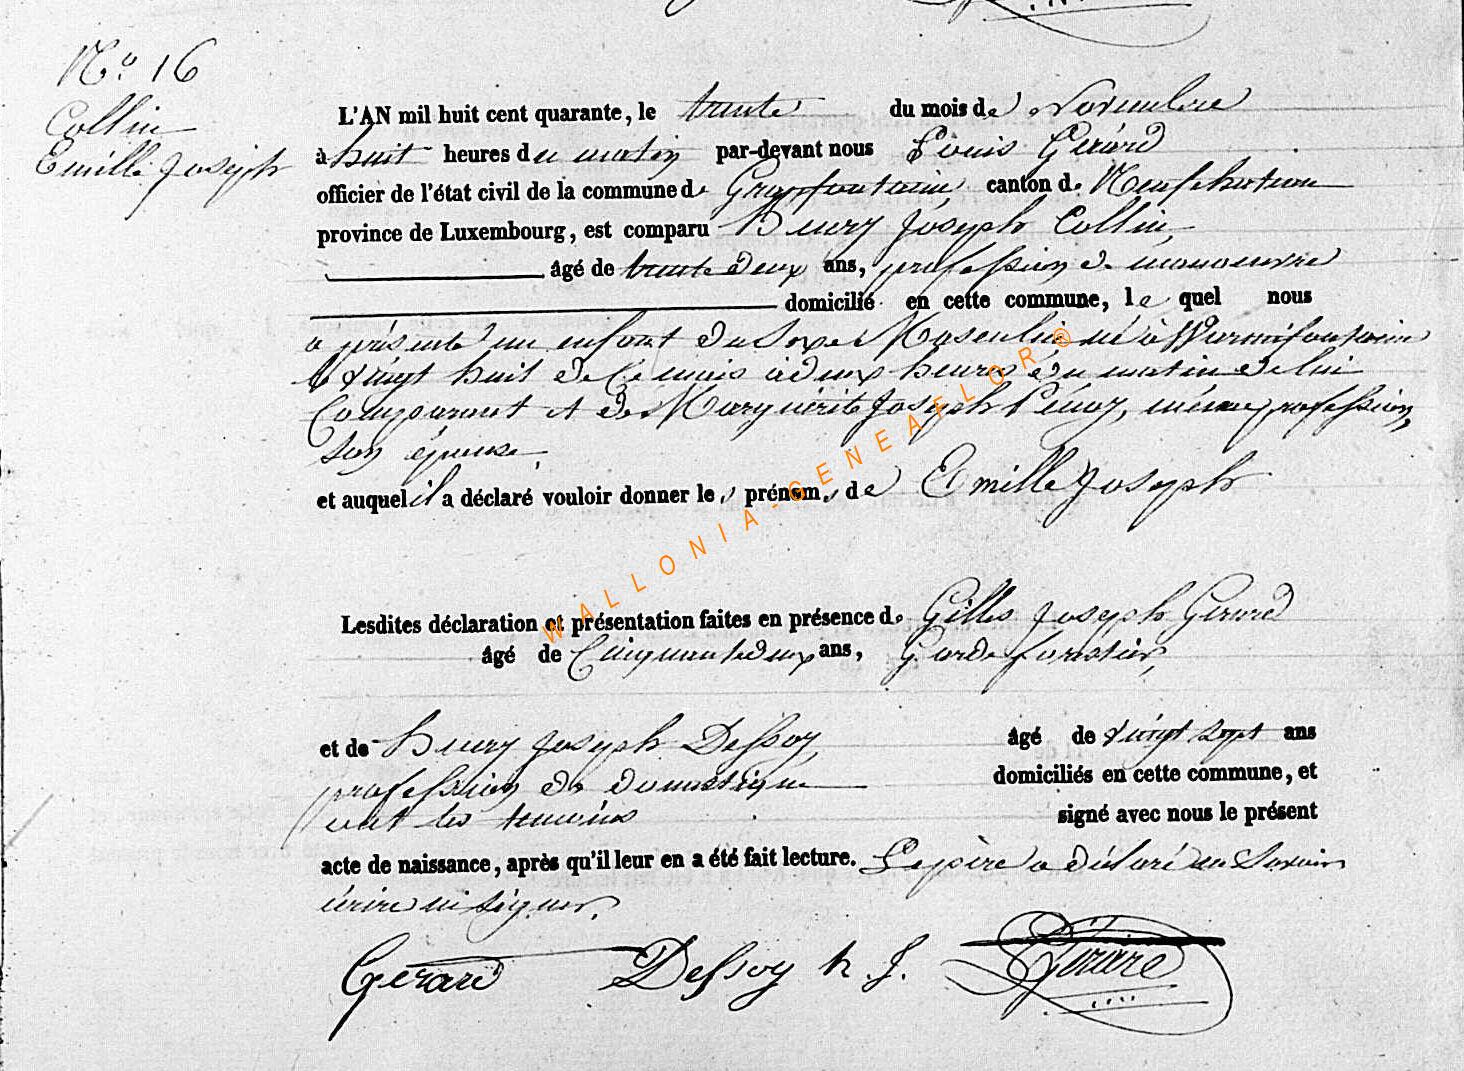 N.o 16
Collin
Emille Joseph
L'AN mil huit cent quarante, le trente du mois de Novembre
à huit heures du matin par-devant nous Louis Gérard
officier de l'état civil de la commune de Grapfontaine canton de Neufchateau
province de Luxembourg, est comparu Henry Joseph Collin,
âgé de trente deux ans, profession de manoeuvre
domicilié en cette commune, le quel nous
a présenté un enfant du Sexe Masculin né à Warmifontaine
le vingt huit de Ce mois à deux heures du matin de lui
Comparant et de Marguérite Joseph même profession,
son épouse,
et auquel il a déclaré vouloir donner les prénoms de Emille Joseph
Lesdites déclaration et présentation faites en présence de Gilles Joseph Gerard
âgé de Cinquante deux ans, Garde forestier,
et de Henry Joseph Dessoy, âgé de vingt sept ans
profession de domestique domiciliés en cette commune, et
ont les temoins signé avec nous le présent
acte de naissance, après qu'il leur en a été fait lecture. Le père a déclaré ne Savoir
écrire ni signer.
Gerard Dessoy h. J. Gérard
WALLONIA-GENEAFLOR®